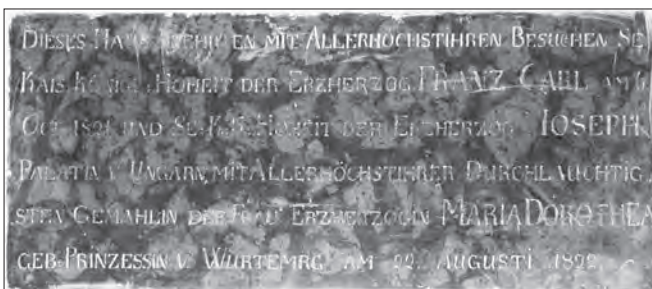 DIESES HAUS BEEHRTEN MIT ALLERHÖCHSTIHREN BESUCHEN SE
KAIS. KÖNIGL. HOHEIT DER ERZHERZOG FRANZ CARL AM
OCT. 1821 UND SE. K.K. HOHEIT DER ERZHERZOG IOSEPH
PALATIN V. UNGARN, MIT ALLERHÖCHSTIHRER DURCHLAUCHTIG
STEN GEMAHLIN DER FRAU ERZHERZOGIN MARIA DOROTHEA
GEB. PRINZESSIN V. WÜRTEMRG. AM 22. AUGUSTI 1822.